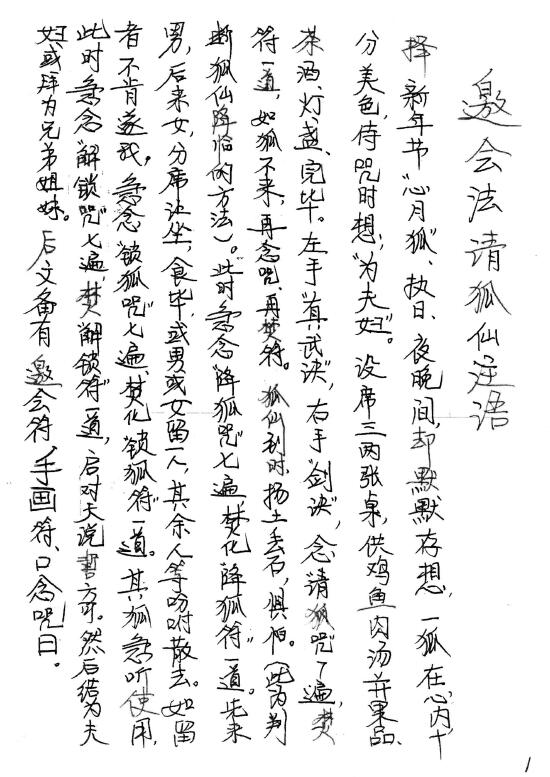 邀会法请狐仙注语
择新年节“心月狐”、执日、夜晚间,却默默存想,一狐在心内十
分美色,侍咒时想,“为夫妇”。设席三两张桌,供鸡鱼肉汤并果品、
茶酒、灯、盏、完毕。左手“真武诀”,右手“剑诀”,念“请狐咒”7遍,焚
符一道,如狐不来,再念咒、再焚符。狐仙到时,扬土丢石,惧怕。(此为判
断狐仙降临的方法)。此时急念“降狐咒”七遍焚化“降狐符”一道。先来
男,后来女,分席让坐,食毕,或男或女留一人,其余人等吩咐散去。如留
者不肯遂我,急念“锁狐咒”七遍、焚化“锁狐符”一道。其狐急听使用,
此时急念“解锁咒”七遍,焚“解锁符”一道,后对天说誓方可。然后结为夫
妇或拜为兄弟姐妹。后文备有邀会符,手画符、口念咒曰。
1